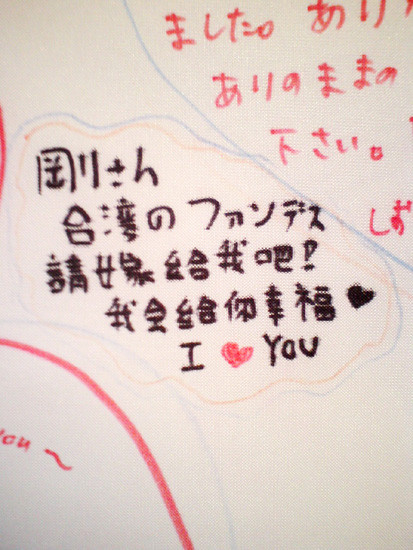 ました。あり
ありのままの
下さい。
しお
剛さん
台湾のファンデス
請嫁給我吧!!
我会給你幸福♥
I ♥ YOU
you ~